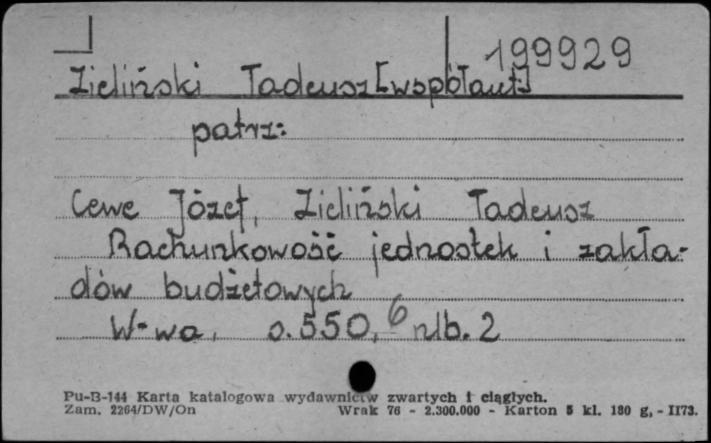 199929
Zieliński Tadeusz [współaut]
patrz:
Cewe Józef, Zieliński Tadeusz
Rachunkowość jednostek i zakła-
dów budżetowych
W-wa, s. 550, 6 nlb. 2
Pu-B-144 Karta katalogowa wydawnictw zwartych i ciągłych.
Zam. 2264/DW/On Wrak 76 - 2.300.000 - Karton 5 kl. 180 g, - II73.